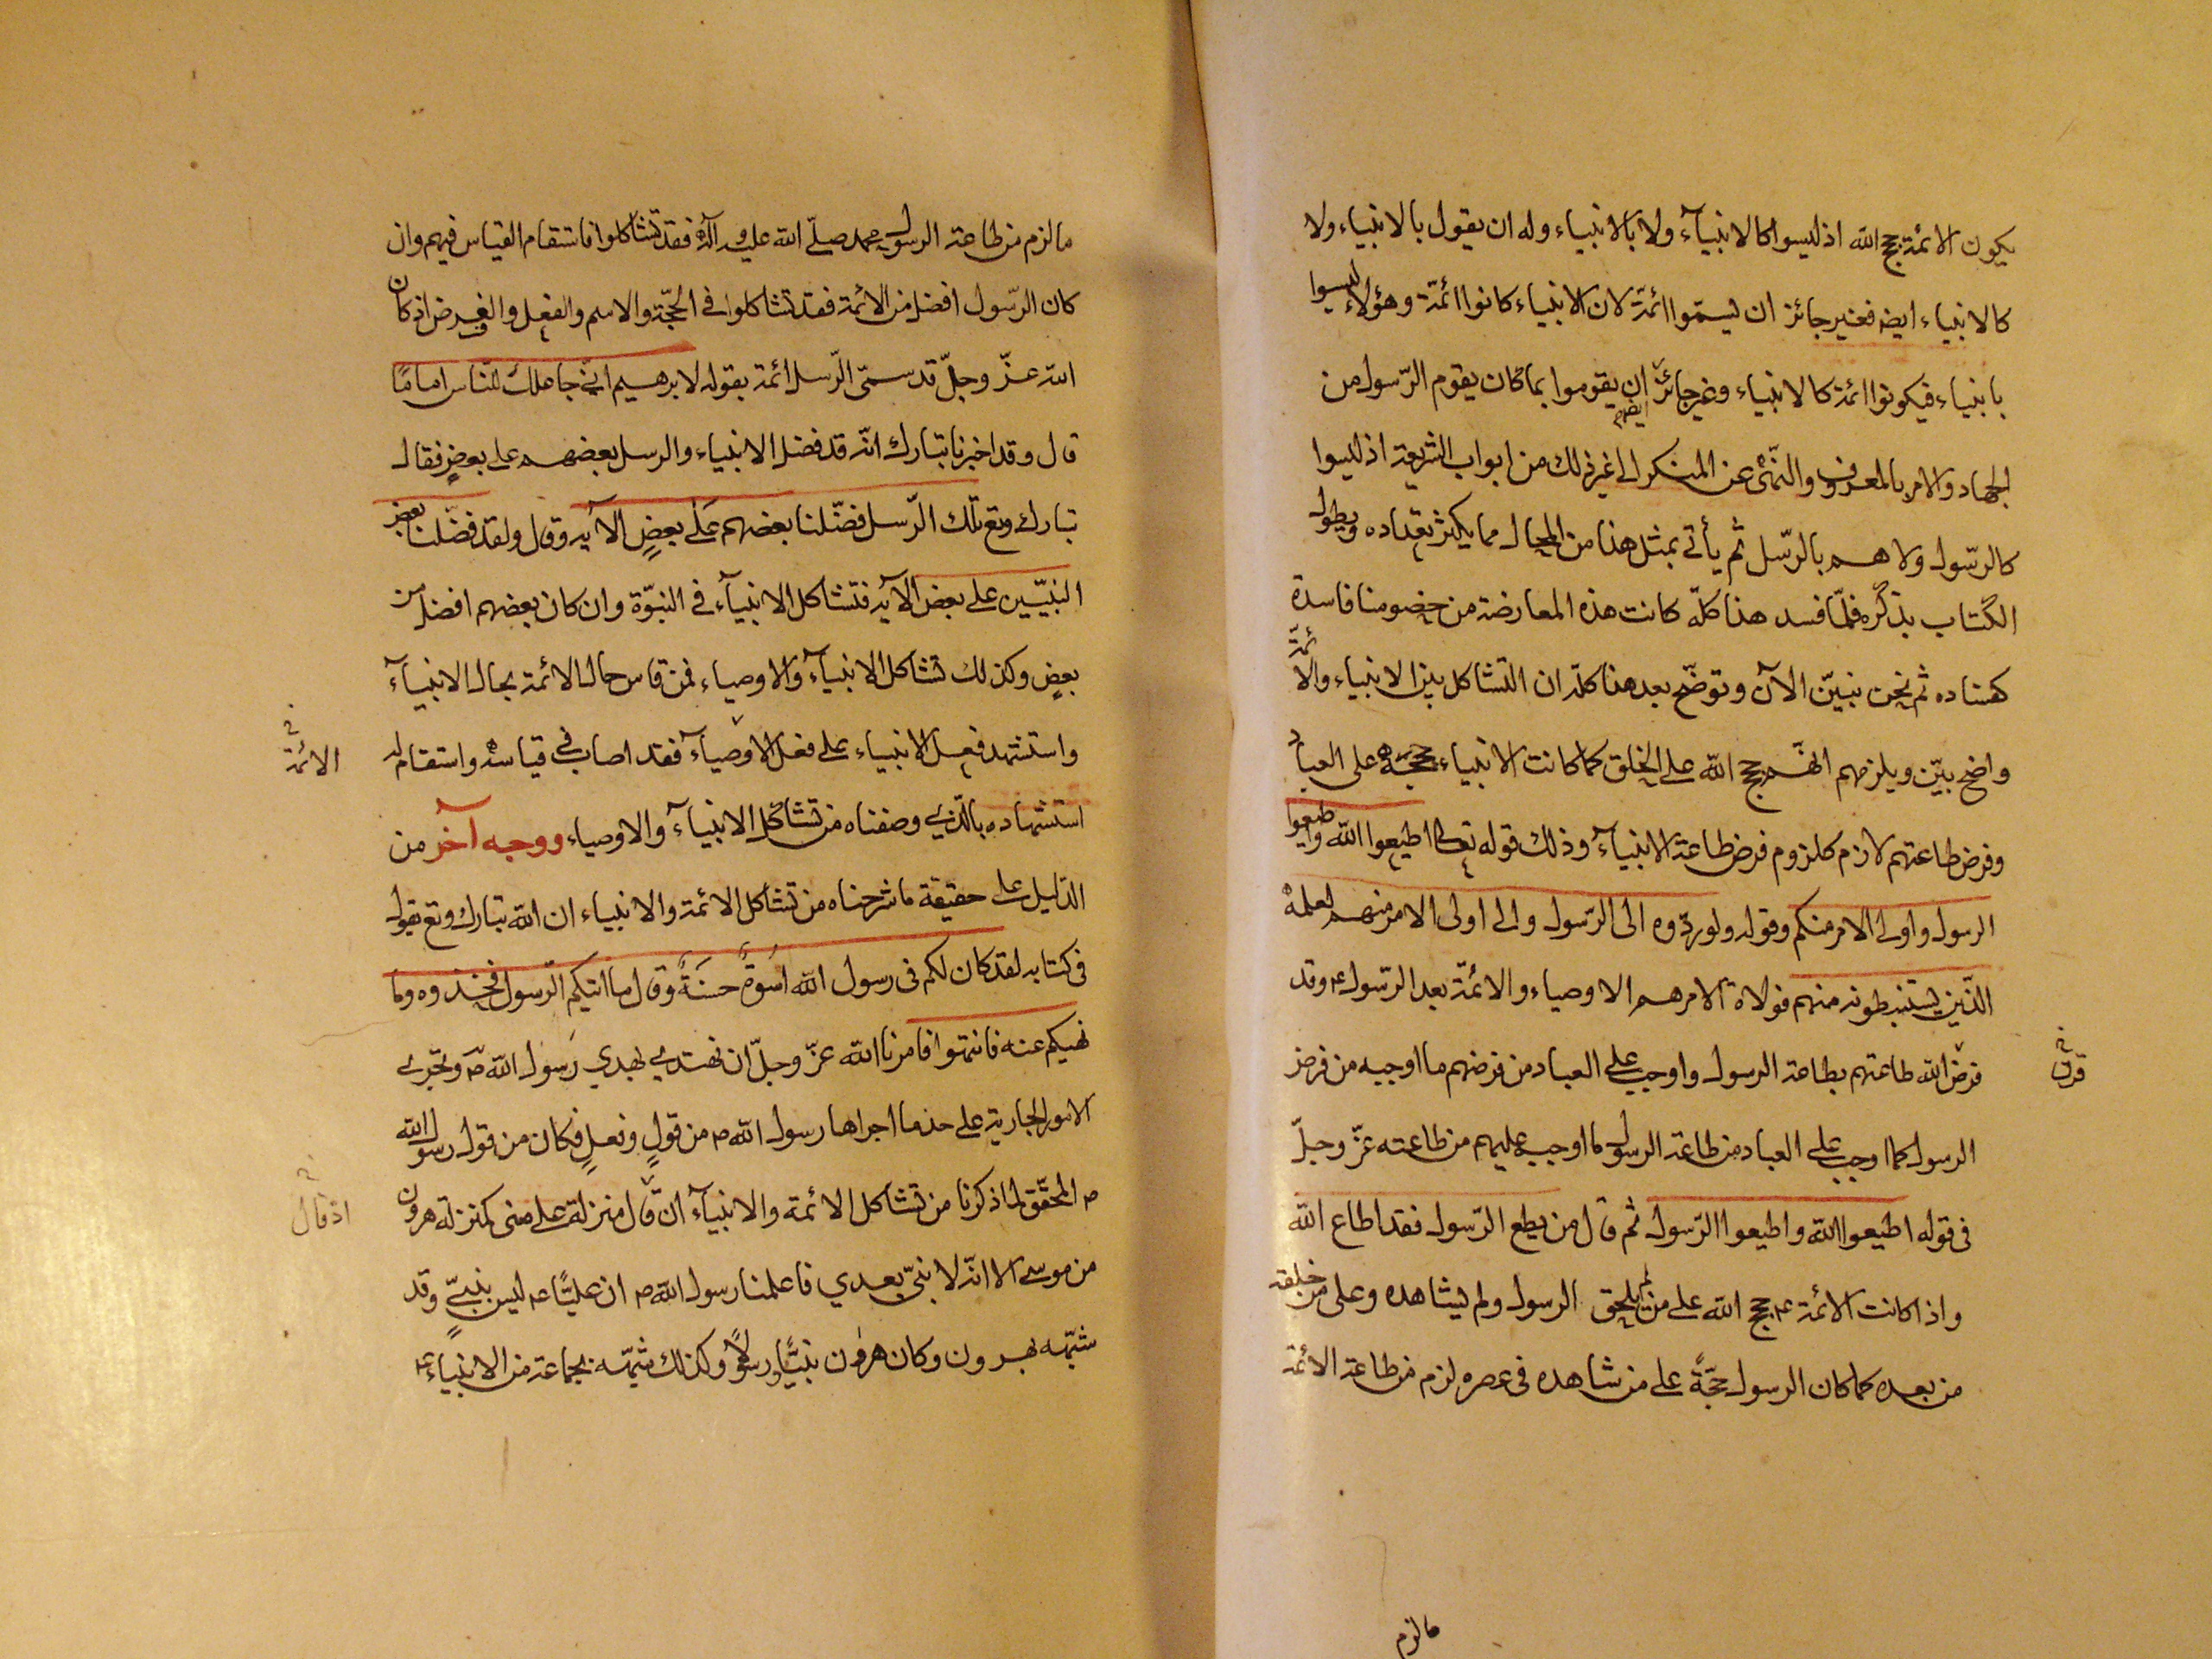 يكون الائمة حجج الله اذ ليسوا كالانبيآء ولا بالانبياء وله ان يقول بالانبياء ولا
كالانبياء ايضه فغير جائز ان ليسمّوا ائمة لان الانبياء كانوا ائمة وهؤلاء ليسوا
بانبياء فيكونوا ائمة كالانبياء وغير جائز ايضه ان يقوموا بما كان يقوم الرّسول من
الجهاد والامر بالمعروف والنّهى عن المنكر الى غير ذلك من ابواب الشريعة اذ ليسوا
كالرّسول ولا هم بالرّسل ثم يأتى بمثل هذا من المحال مما يكثر تعداده ويطول
الكتاب بذكره فلمّا فسد هذا كلّه كانت هذه المعارضة من خصومنا فاسدة
كفساده ثم نحن نبيّن الآن ونوضّح بعد هذا كلّه ان التشاكل بين الانبياء والائمّة
واضح بيّن ويلزمهم انّهم حجج الله على الخلق كما كانت الانبياء حججه على العباد
وفرض طاعتهم لازم كلزوم فرض طاعة الانبيآء وذلك قوله تعالى اطيعوا الله واطيعوا
الرسول واولى الامر منكم وقوله ولو ردّوه الى الرّسول والى اولى الامر منهم لعلمه
الذّين يستنبطونه منهم فولاة الامر هم الاوصياء والائمّة بعد الرّسول ع وقد
قرن
فرض الله طاعتهم بطاعة الرسول واوجب على العباد من فرضهم ما اوجبه من فرض
الرسول كما اوجب على العباد من طاعة الرسول ما اوجب عليهم من طاعته عزّ وجلّ
فى قوله اطيعوا الله واطيعوا الرّسول ثم قال من يطع الرّسول فقد اطاع الله
واذا كانت الائمة ع حجج الله على من لم يلحق الرسول ولم يشاهده وعلى من خلفه
من بعده كما كان الرسول حجّةً على من شاهده فى عصره لزم من طاعة الائمة
مالزم
مالزم من طاعة الرسول محمد صلّى الله عليه وآله فقد تشاكلوا فاستقام القياس فيهم وان
كان الرّسول افضل من الائمة فقد تشاكلوا فى الحجّة والاسم والفعل والفرض اذ كان
الله عزّ وجلّ قد سمّى الرّسل ائمة بقوله لابرهيم انّى جاعلك للنّاس امامًا
قال وقد اخبرنا تبارك انّه قد فضل الانبياء والرسل بعضهم على بعضٍ فقال
تبارك وتع تلك الرّسل فضّلنا بعضهم عَلى بعضٍ الآيه وقال ولقد فضّلنا بعض
النبيّين على بعض الآيه فتشاكل الانبيآء فى النبوّة وان كان بعضهم افضل من
بعضٍ وكذلك تشاكل الانبيآء والاوصياء فمن قاس حال الائمة بحال الانبيآء
واستشهد فعل الانبياء على فعل الاوصيآء فقد اصاب فى قياسه واستقام له
الائمة
استشهاده بالّذى وصفناه من تشاكل الانبيآء والاوصياء ووجه آخر من
الدّليل على حقيقة ما شرحناه من تشاكل الائمة والانبياء ان الله تبارك وتع يقول
فى كتابه لقد كان لكم فى رسول الله اسُوةٌ حسَنَةٌ وقال ما اتيكم الرّسول فخذوه وما
نهيكم عنه فانتهوا فامرنا الله عزّ وجلّ ان نهتدى بهدي رَسول الله ص ونجرى
الامور الجارية على حد ما اجراها رسول الله ص من قولٍ وفعلٍ فكان من قول رسول الله
ص المحقّق لما ذكرنا من تشاكل الائمة والانبيآء ان قال منزلة على منى كمنزلة هرون
اذ قال
من موسى الا انّه لا نبىّ بعدي فاعلمنا رسول الله ص ان عليًّا ع ليس بنبىٍّ وقد
شبّهه بهرون وكان هرون نبيًّا ورسولًا وكذلك شبّهه بجماعة من الانبياء ع